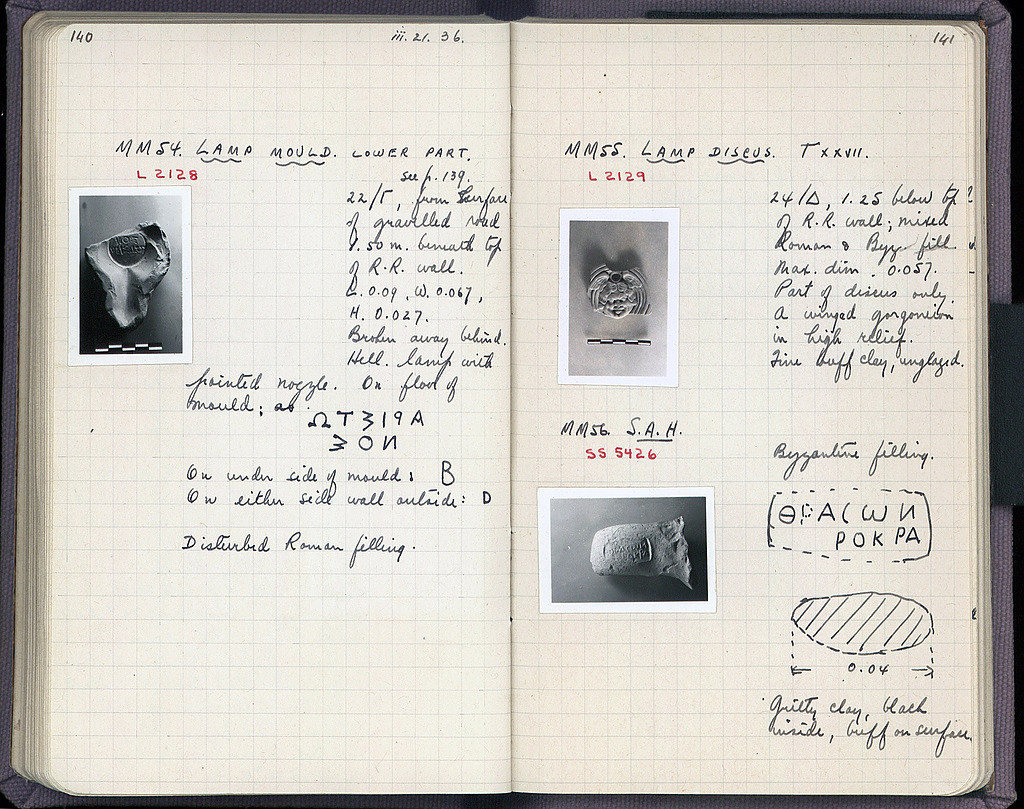 140
iii. 21. 36.
MM54. LAMP MOULD. LOWER PART.
L 2128
see p. 139.
22/Γ, from surface
of gravelled road
1.50 m. beneath top
of R.R. wall.
L. 0.09, W. 0.067,
H. 0.027.
Broken away behind.
Hell. lamp with
pointed nozzle. On floor of
mould; as :
ΩΤƸΙ9Α
ƸΟИ
On under side of mould: B
On either side wall outside: D
Disturbed Roman filling.
141
MM55. LAMP DISCUS. T XXVII.
L 2129
24/Δ, 1.25 below top
of R.R. wall; mixed
Roman & Byz. fill.
Max. dim. 0.057.
Part of discus only.
A winged gorgoneion
in high relief.
Fine buff clay, unglazed.
MM56. S.A.H.
SS 5426
Byzantine filling.
ΘΡΑϹΩИ
ΡΟΚΡΑ
0.04
Gritty clay, black
inside, buff on surface.